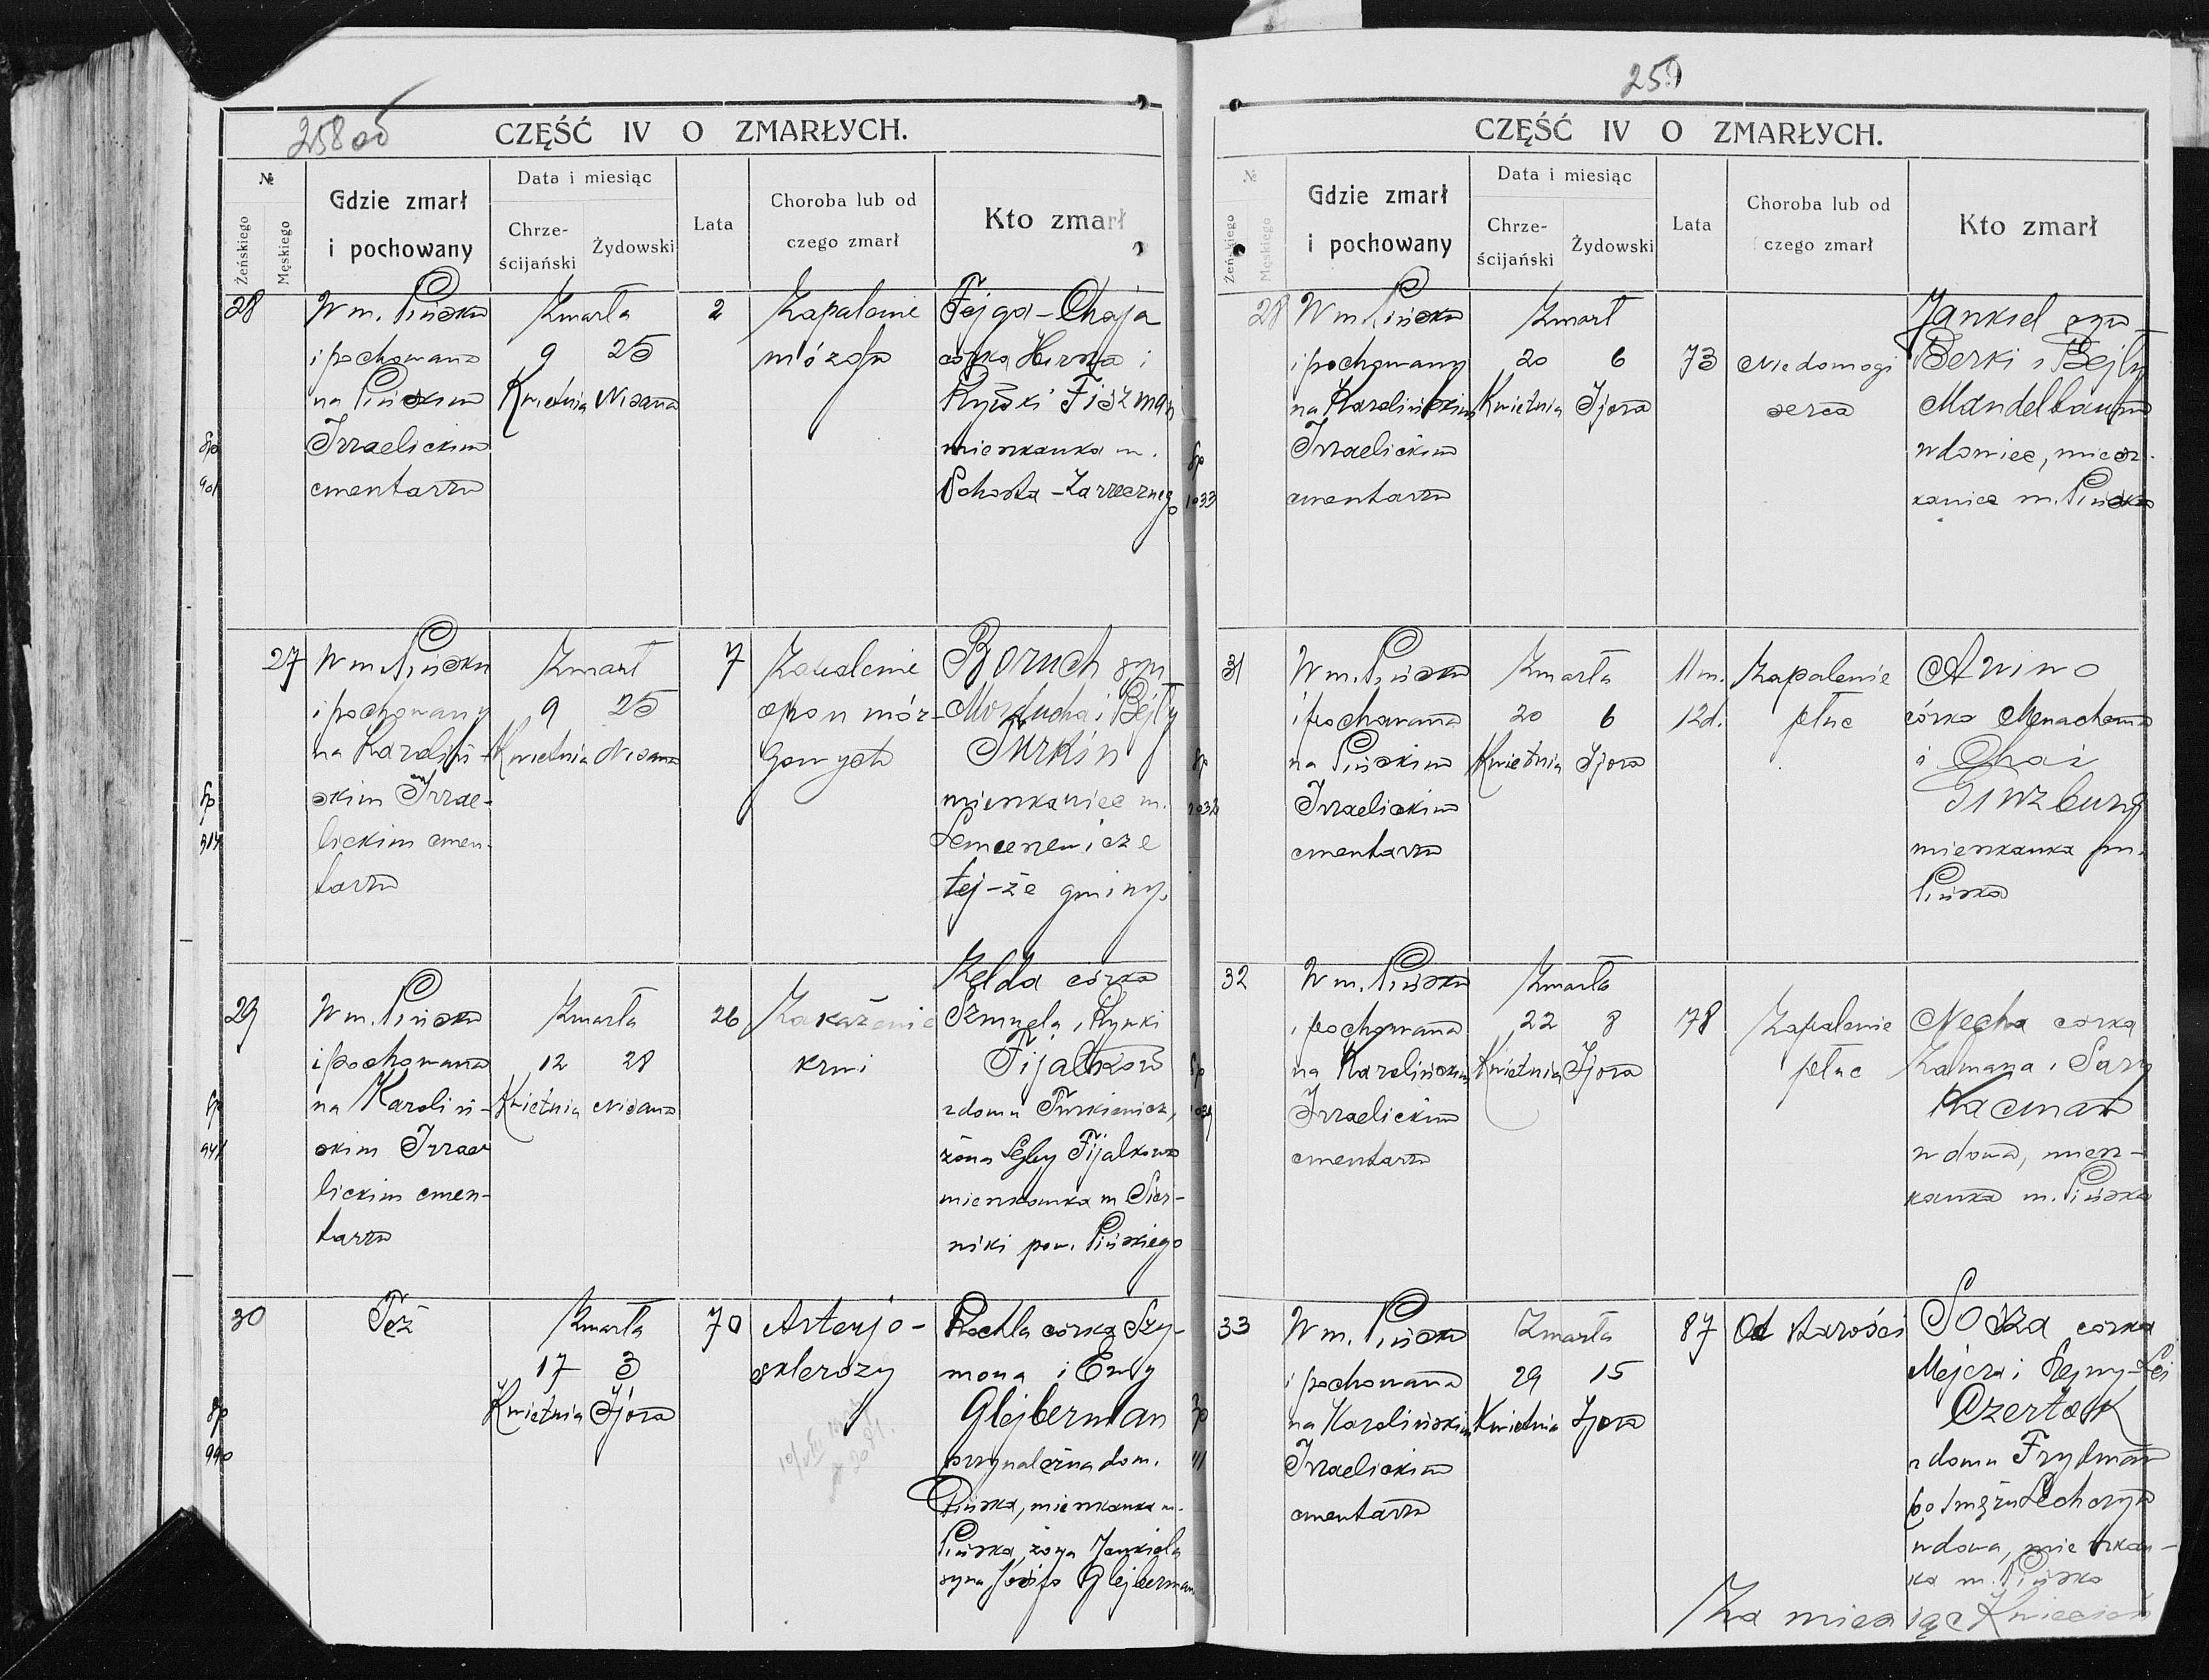 258 об
CZĘŚĆ IV O ZMARŁYCH.
№
Żeńskiego
Męskiego
Gdzie zmarł
i pochowany
Data i miesiąc
Chrze-
ścijański
Żydowski
Lata
Choroba lub od
czego zmarł
Kto zmarł
28
W m. Pińsku
i pochowana
na Pińskim
Izraelickim
cmentarzu
Zmarła
9 25
Kwietnia Nisana
2
Zapalenie
mózgu
Fejga-Chaja
córka Herszka i
Rywki Fiszman
mieszkanka m.
Pohosta-Zarzecznego
27
W m. Pińsku
i pochowany
na Karoliń-
skim Izrae-
lickim cmen-
tarzu
Zmarł
9 25
Kwietnia Nisana
7
Zapalenie
opon móz-
gowych
Boruch syn
Morducha i Bejly
Turkin
mieszkaniec m.
Lemieszewicze
tej-że gminy.
29
W m. Pińsku
i pochowana
na Karoliń-
skim Izrae-
lickim cmen-
tarzu
Zmarła
12 28
Kwietnia Nisana
26
Zakażenie
krwi
Zelda córka
Szmuela i Rywki
Fijałkow
z domu Turkienicz,
żona Fijałkowa
mieszkanka m Sier-
niki pow. Pińskiego
30
Też
Zmarła
17 3
Kwietnia Ijora
70
Arterjo-
sklerozy
Rochla córka Szy-
mona i
Glejberman
przynależna do m.
Pińska, mieszkanka m.
Pińska, żona Jankiela
syna Josifa Glejberman
259
CZĘŚĆ IV O ZMARŁYCH.
№
Żeńskiego
Męskiego
Gdzie zmarł
i pochowany
Data i miesiąc
Chrze-
ścijański
Żydowski
Lata
Choroba lub od
czego zmarł
Kto zmarł
28
W m. Pińsku
i pochowany
na Karolińskim
Izraelickim
cmentarzu
Zmarł
20 6
Kwietnia Ijora
73
Niedomogi
serca
Jankiel syn
Berki i Bejly
Mandelbaum
wdowiec, miesz-
kaniec m. Pińska
1033
31
W m. Pińsku
i pochowana
na Pińskim
Izraelickim
cmentarzu
Zmarła
20 6
Kwietnia Ijora
11 m.
12 d.
Zapalenie
płuc
córka Menachema
i Chai
Ginzburg
mieszkanka m.
Pińska
32
W m. Pińsku
i pochowana
na Karolińskim
Izraelickim
cmentarzu
Zmarła
22 8
Kwietnia Ijora
78
Zapalenie
płuc
Necha córka
Kalmana i Sary
Kacman
wdowa, miesz-
kanka m. Pińska
33
W m. Pińsku
i pochowana
na Karolińskim
Izraelickim
cmentarzu
Zmarła
29 15
Kwietnia Ijora
87
Od starości
Soszka córka
Mejera i
Czertok
z domu Frydman
po mężu
wdowa, mieszkan-
ka m. Pińska
Za miesiąc Kwiecień